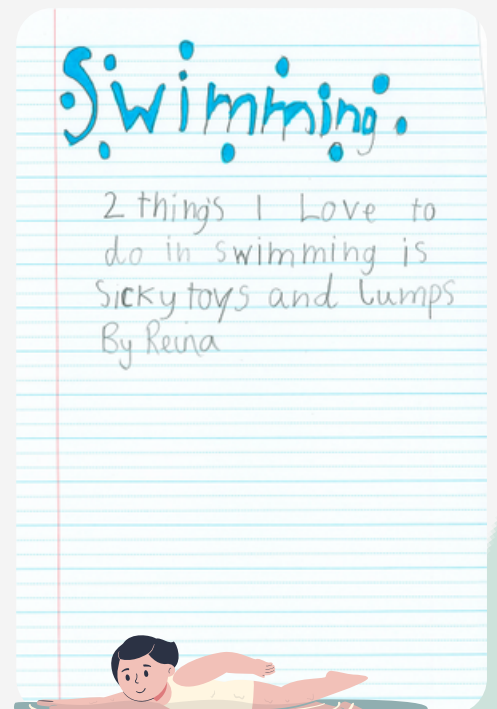 Swimming.
2 things I Love to
do in swimming is
Sicky toys and Lumps
By Reina